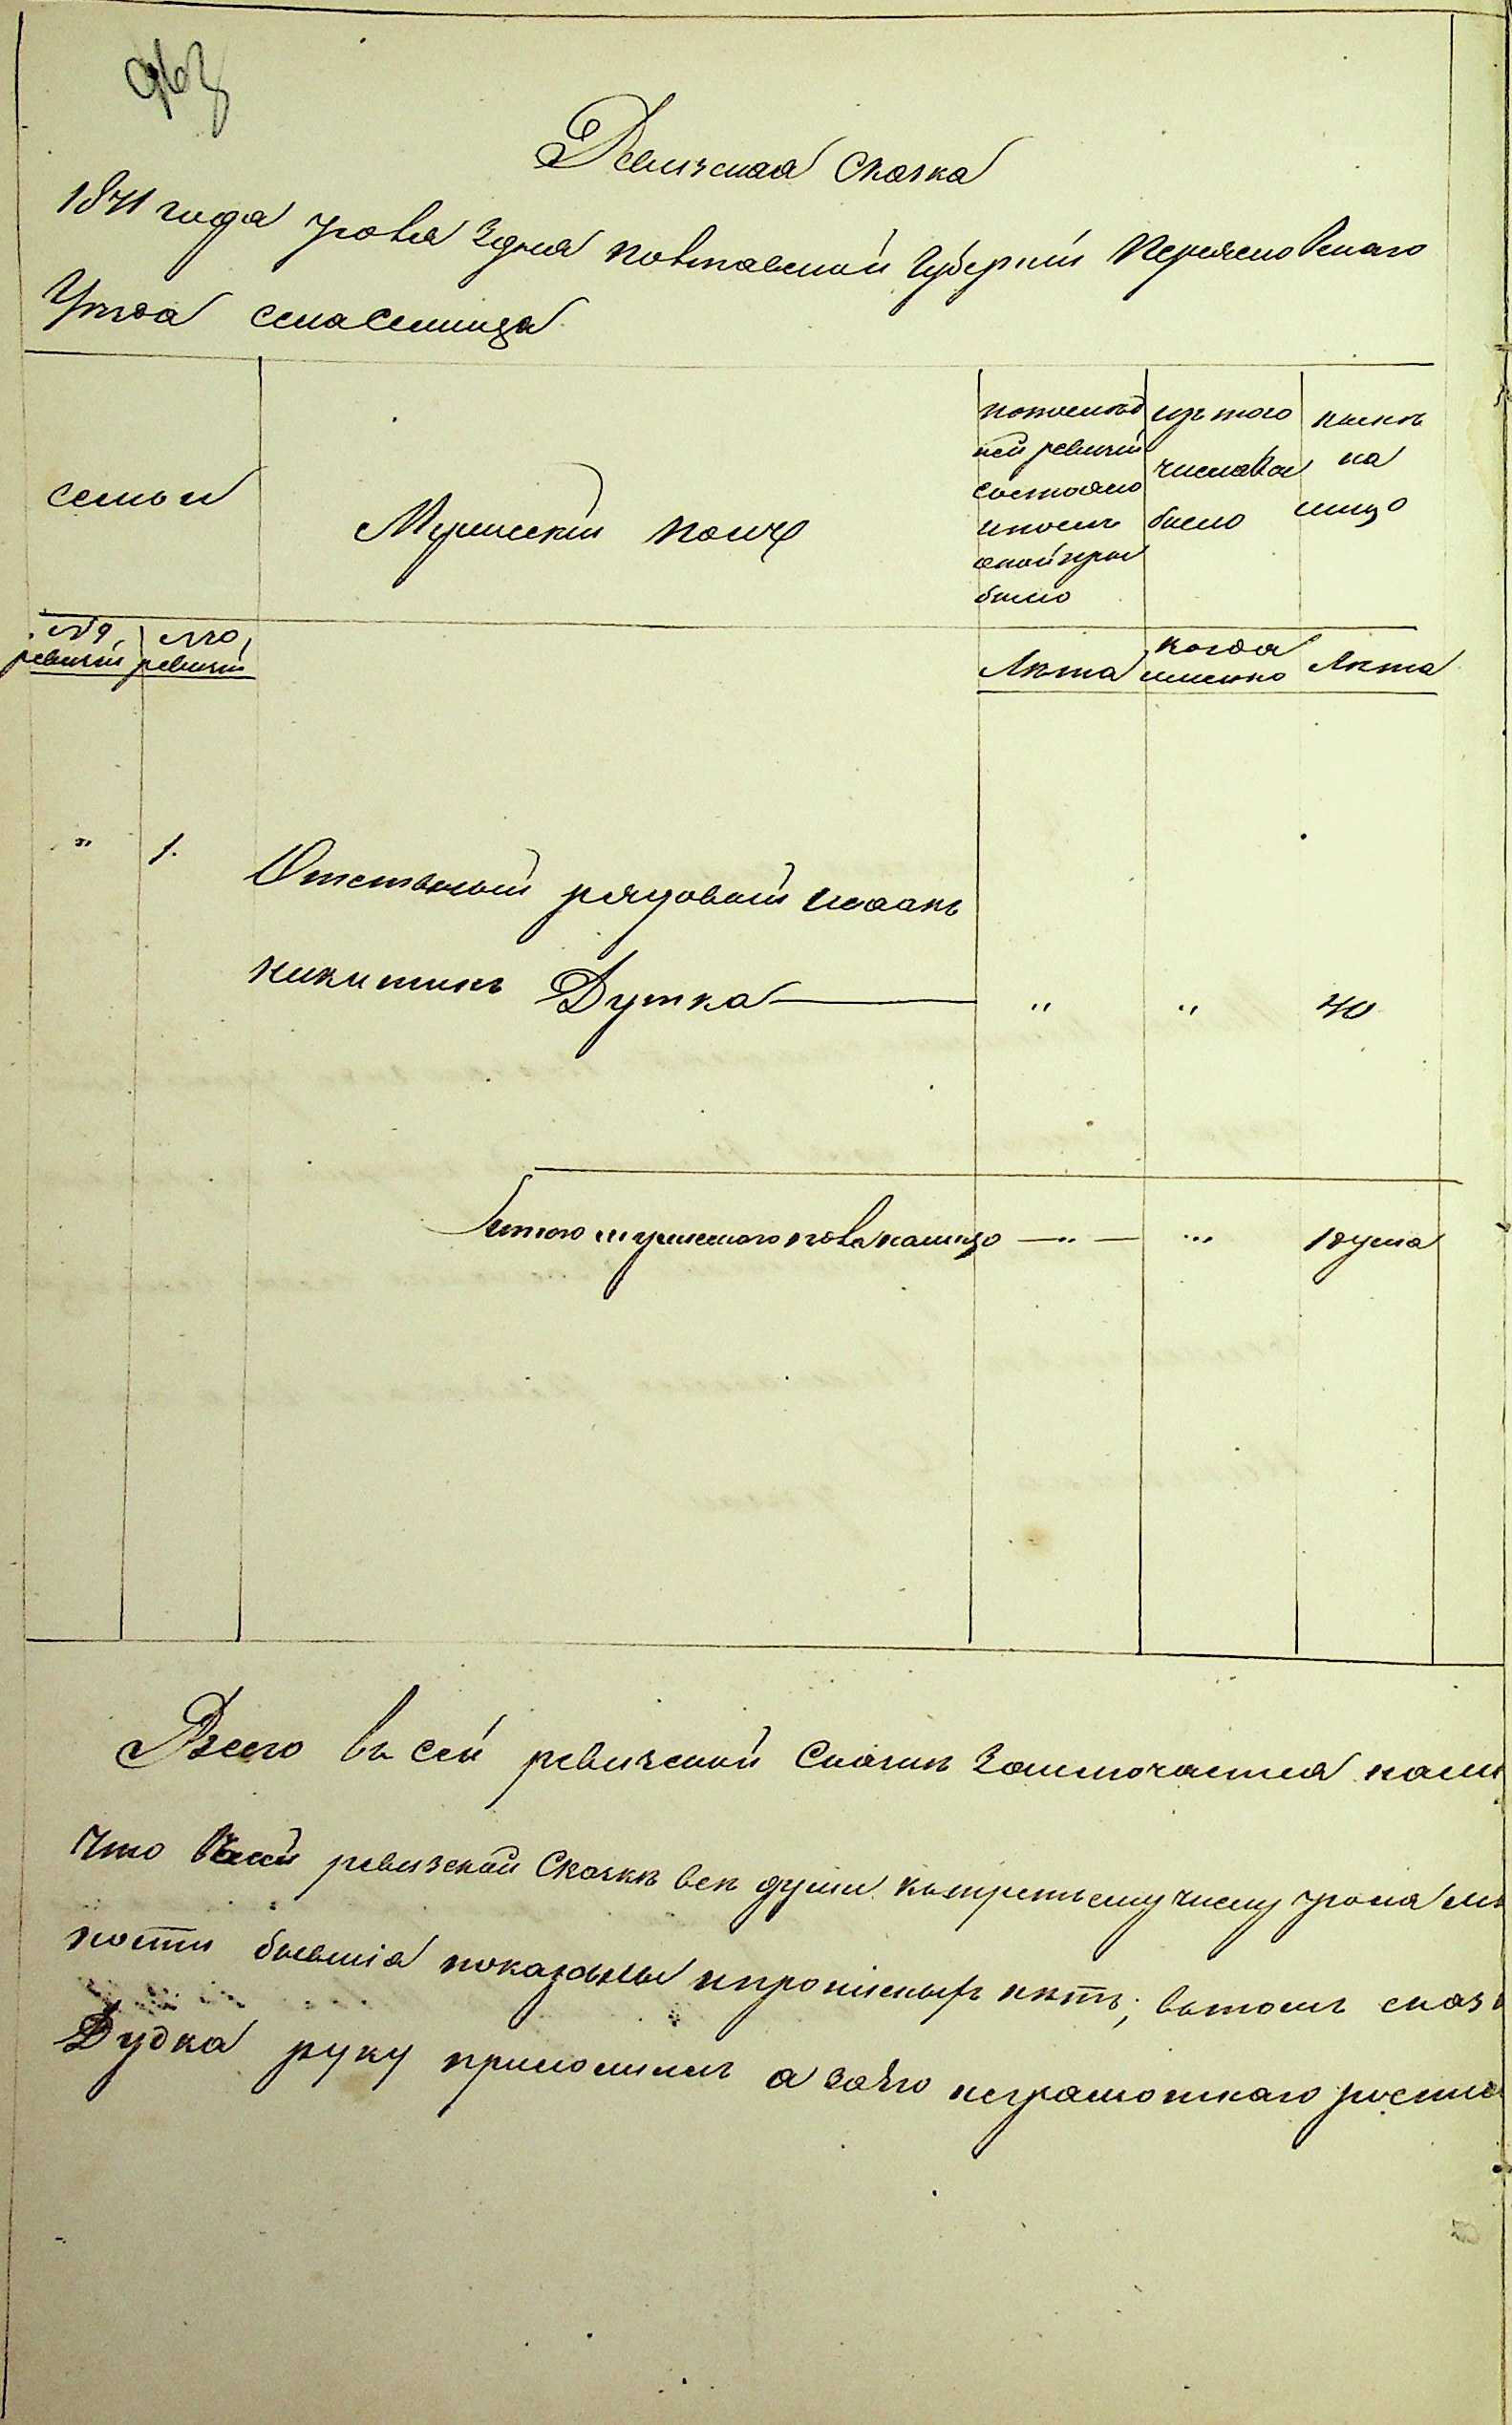 963
Ревизская сказка
1871 года Іюля 3 дня Полтавской Губерніи Переясловскаго
Уѣзда села Селища
семьи
Мужескій полъ
по послѣд
ней ревизіи
состояло
и послѣ
оной при
было
изъ того
числа вы
было
нынѣ
на
лицо
№ 9 ревизіи
№ 10 ревизіи
Лѣта
когда именно
Лѣта
" 1.
Отставной рядовой Иванъ
Никитинъ Дутка " " 40
Итого мужескаго пола налицо — " — " 1 душа
Всего въ сей ревизской сказкѣ заключается нали
что въ сей ревизской сказкѣ всѣ души къ третьему числу Іюля мѣ
ности бывшіа показаны и прописныхъ нѣтъ; въ томъ сказ
Дудка руку приложилъ а за его неграмотнаго роспис